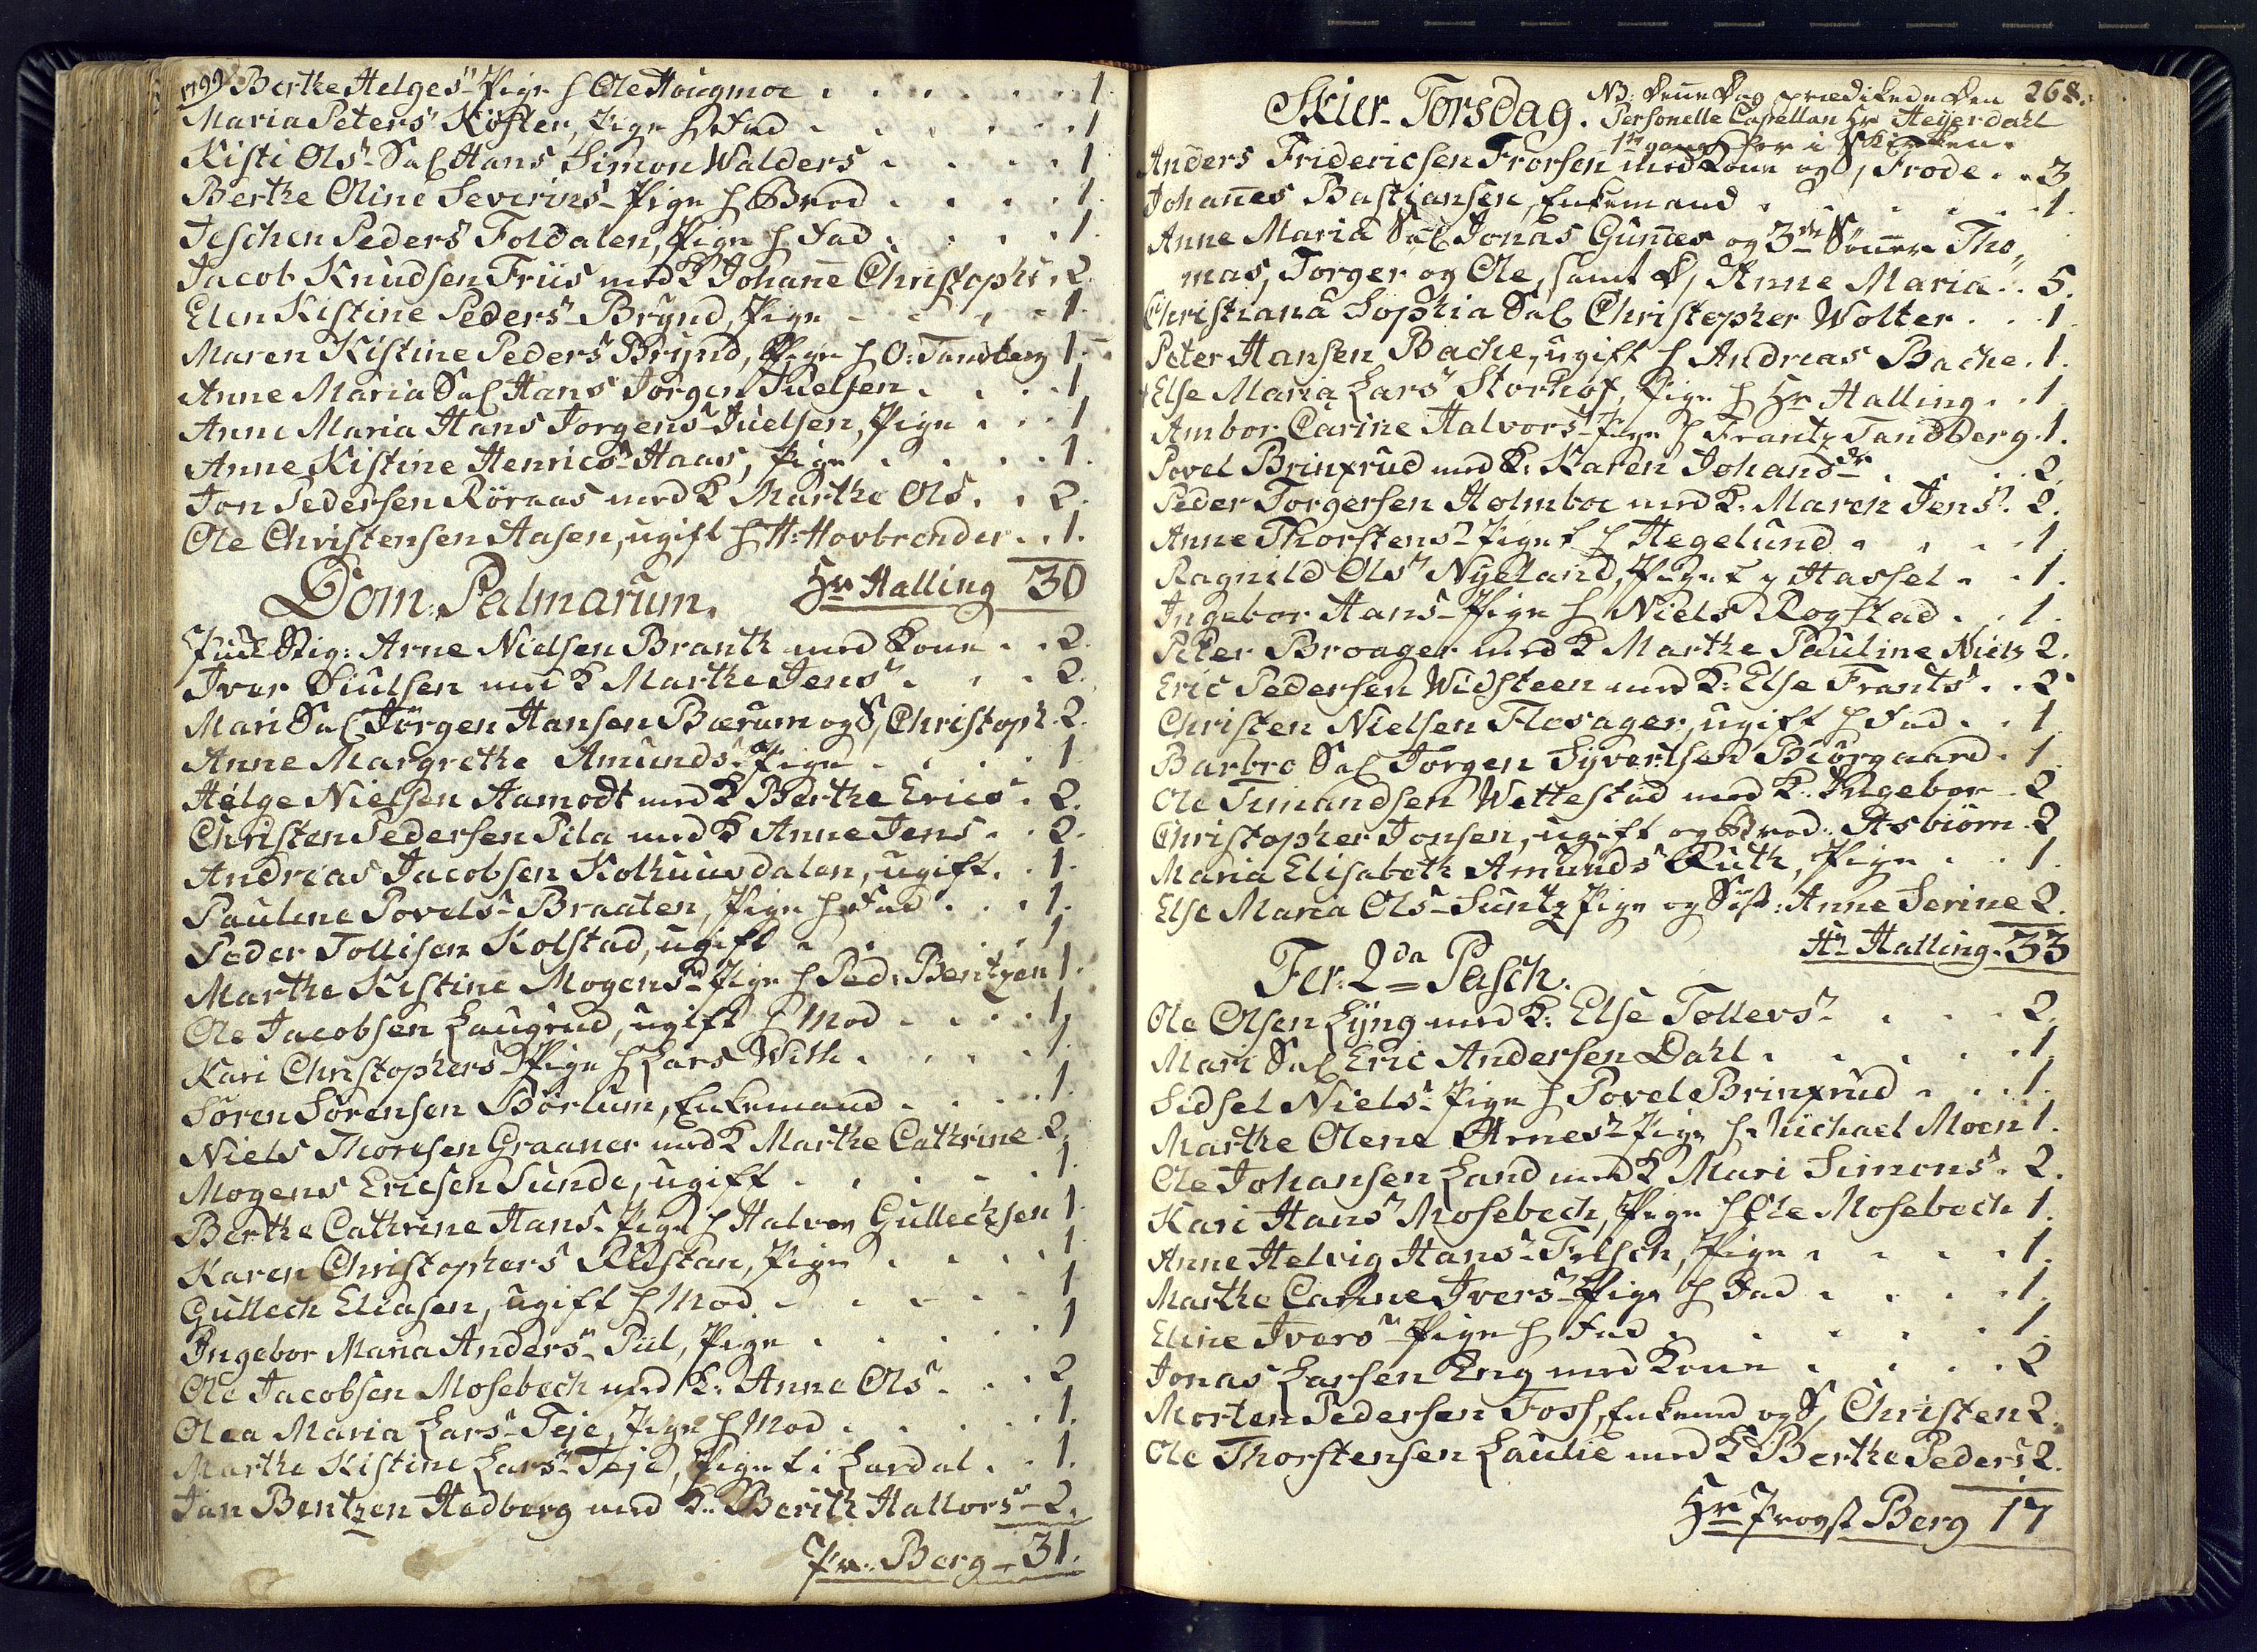 1799 Berthe Helges Pige h Ole Hougmoe . . . . . . 1
Maria Peters Köster, Pige h Fad . . . . . . 1
Kisti Ols Sal Hans Simon Walders . . . . 1
Berthe Oline Severins Pige h Brod . . . . 1.
Jeschen Peders Foldalen, Pige h Fad . . . . 1.
Jacob Knudsen Friis med K Johane Christophs . 2.
Elen Kistine Peders Brynd, Pige . . . . 1.
Maren Kistine Peders Brynd, Pige h O: Tandberg 1.
Anne Maria Sal Hans Jorgen Juelsen . . . 1
Anne Maria Hans Jorgens Juelsen, Pige . . . 1
Anne Kistine Henrics Haas, Pige . . . . 1.
Jon Pedersen Röraas med K Marthe Ols . . 2.
Ole Christensen Aasen, ugift h H: Hovbrender . . 1.
Dom: Palmarum. Hr Halling 30
Arne Nielsen Branth med Kone . . 2.
Iver Siulsen med K Marthe Jens . . . 2.
Mari Sal Jörgen Hansen Bærum og S, Christoph . 2.
Anne Margrethe Amunds Pige . . . . 1
Helge Nielsen Aamodt med K Berthe Erics . 2.
Christen Pedersen Pila med K Anne Jens . . 2.
Andreas Jacobsen Kolhuusdalen, ugift . . 1.
Pauline Povels Braaten, Pige h Fad . . . 1.
Peder Tollisen Kolstad, ugift . . . . 1
Marthe Kistine Mogens Pige h Ped: Bentzen 1.
Ole Jacobsen Laugrud, ugift h Mod . . . . 1.
Kari Christophers Pige h Lars With . . . . 1.
Sören Sörensen Börlum, Enkemand . . . . 1.
Niels Thoresen Graaner med K Marthe Cathrine . 2.
Mogens Ericsen Sunde, ugift . . . . 1.
Berthe Cathrine Hans Pige h Halvor Gullechsen 1.
Karen Christophers Rustan, Pige . . . . 1
Gullech Eliasen, ugift h Mod . . . . 1
Ingebor Maria Anders Piil, Pige . . . . 1
Ole Jacobsen Mosebech med K: Anne Ols . . . 2
Olea Maria Lars Teje, Pige h Mod . . . . 1.
Marthe Kistine Lars Teje, Pige f i Lardal . . 1.
Jan Bentzen Hedberg med K: Berith Hallvors - 2.
Pr: Berg - 31.
268.
Skier-Torsdag. NB. denne Dag prædikede den
Personelle Capellan Hr Heyerdahl
1te gang her i Kirken.
Anders Fridericsen Frorsen med Kone og S, Frode . . 3
Johanes Bastiansen, Enkemand . . . . . 1.
Anne Maria Sal Jonas Gunnes og 3de Sönner Tho,,
mas, Torger og Ole, samt D, Anne Maria . . 5.
Christiana Sophia Sal Christopher Wolter . . . 1.
Peter Hansen Bache, ugift h Andreas Bache . 1.
Else Maria Lars Storhof, Pige h Hr Halling . . 1.
Ambor Carine Halvors Pige h Frantz Tandberg . 1.
Povel Brinxrud med K: Karen Johansdr . . . . 2.
Peder Torgersen Holmboe med K: Maren Jens . 2.
Anne Thorstens Pige f h Hegelund . . . . 1.
Ragnild Ols Nyeland, Pige f y Hassel . . . 1.
Ingebor Hans Pige h Niels Rogstad . . . 1.
Peter Broager med K Marthe Pauline Niels 2.
Eric Pedersen Widsteen med K: Else Frants . . 2
Christen Nielsen Flesager, ugift h Fad . . 1
Barbro Sal Jorgen Syvertsen Biörgaard . 1.
Ole Simandsen Wettestad med K: Ingebor . 2
Christopher Jonsen, ugift og Brod: Asbiörn . 2
Maria Elisabeth Amunds Ruth, Pige . . . 1.
Else Maria Ols Suntz Pige og Sist: Anne Serine 2.
Hr Halling . 33
Fer: 2da Pasch.
Ole Olsen Lyng med K: Else Tollevs . . . 2.
Mari Sal Eric Andersen Dahl . . . . . 1.
Sidsel Niels Pige h Povel Brinxrud . . . 1.
Marthe Olene Arnes Pige h Michael Moen 1.
Ole Johansen Land med K Mari Simons . 2.
Kari Hans Mosebech, Pige h Ole Mosebech 1.
Anne Helvig Hans Felsch, Pige . . . . 1.
Marthe Carine Ivers Pige h Fad . . . . 1.
Eline Ivers Pige h Fad . . . . . 1.
Jonas Larsen Eng med Kone . . . . 2
Morten Pedersen Foss, Enkemd og S, Christen 2.
Ole Thorstensen Laulie med K Berthe Peders 2.
Hr Provst Berg 17